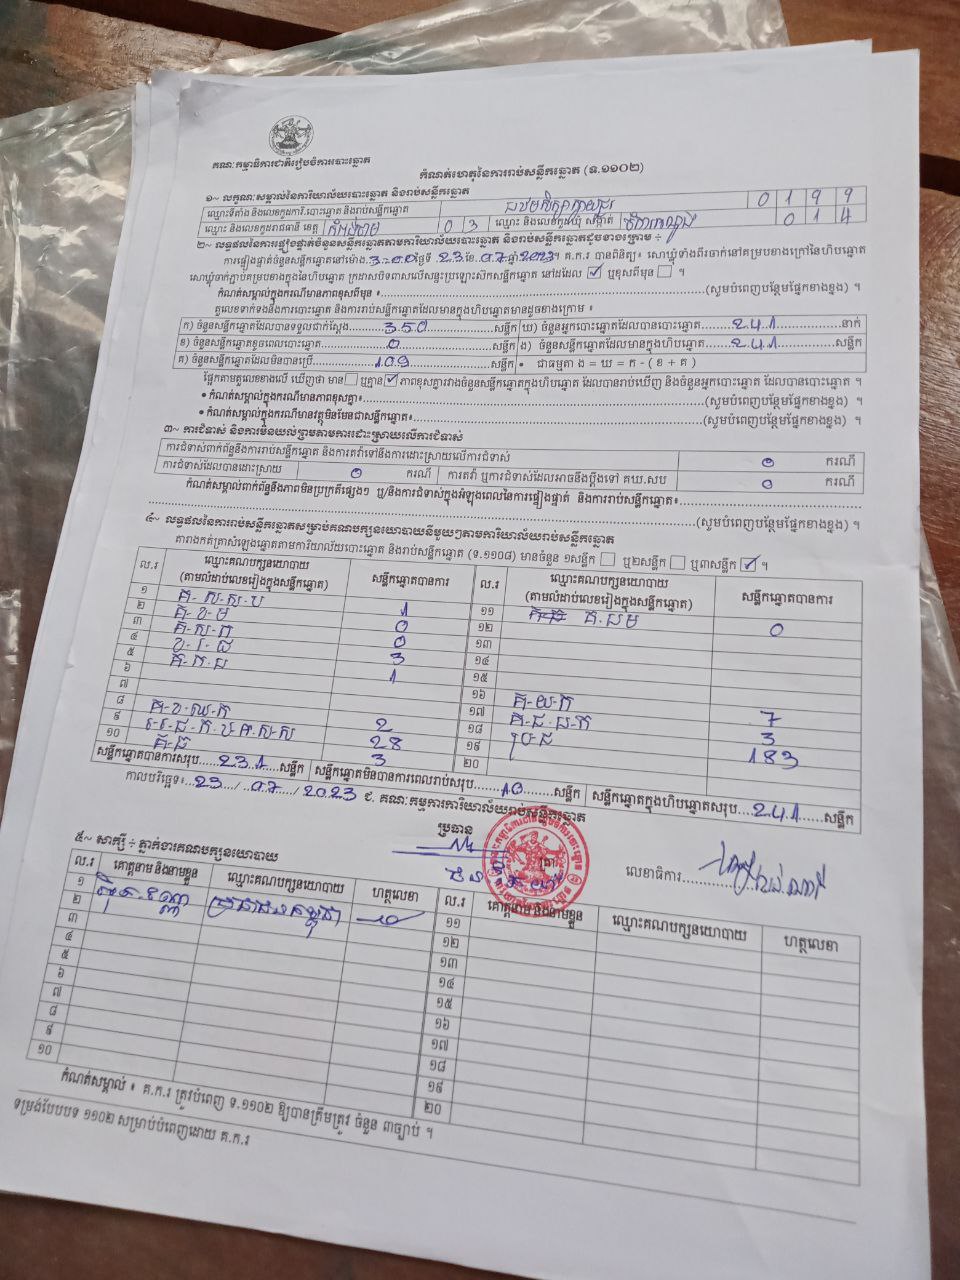 គណៈកម្មាធិការជាតិរៀបចំការបោះឆ្នោត
កំណត់ហេតុនៃការរាប់សន្លឹកឆ្នោត (ទ.១១០២)
១~ លក្ខណៈសម្គាល់នៃការិយាល័យបោះឆ្នោត និងរាប់សន្លឹកឆ្នោត
ឈ្មោះទីតាំង និងលេខកូដការិ.បោះឆ្នោត និងរាប់សន្លឹកឆ្នោត 0 1 9 9
ឈ្មោះ និងលេខកូដរាជធានី ខេត្ត កំពង់ចាម 0 3 ឈ្មោះ និងលេខកូដឃុំ សង្កាត់ 0 1 4
២~ លទ្ធផលនៃការផ្ទៀងផ្ទាត់ចំនួនសន្លឹកឆ្នោតតាមការិយាល័យបោះឆ្នោត និងរាប់សន្លឹកឆ្នោតដូចខាងក្រោម ÷
ការផ្ទៀងផ្ទាត់ចំនួនសន្លឹកឆ្នោតនៅម៉ោង 3-00 ថ្ងៃទី 23 ខែ 07 ឆ្នាំ 2023។ គ.ក.រ បានពិនិត្យ៖ សោឃ្លុំទាំងពីរចាក់នៅគម្របខាងក្រៅនៃហិបឆ្នោត
សោឃ្លុំចាក់ភ្ជាប់គម្របខាងក្នុងនៃហិបឆ្នោត ក្រដាសបិទពាសលើសន្ទះប្រឡោះស៊កសន្លឹកឆ្នោត នៅដដែល ☑ ឬខុសពីមុន ☐ ។
កំណត់សម្គាល់ក្នុងករណីមានភាពខុសពីមុន ៖ (សូមបំពេញបន្ថែមផ្នែកខាងខ្នង) ។
តួលេខទាក់ទងនឹងការបោះឆ្នោត និងការរាប់សន្លឹកឆ្នោតដែលមានក្នុងហិបឆ្នោតមានដូចខាងក្រោម ៖
ក) ចំនួនសន្លឹកឆ្នោតដែលបានទទួលជាក់ស្តែង 350 សន្លឹក ឃ) ចំនួនអ្នកបោះឆ្នោតដែលបានបោះឆ្នោត 241 នាក់
ខ) ចំនួនសន្លឹកឆ្នោតខូចពេលបោះឆ្នោត 0 សន្លឹក ង) ចំនួនសន្លឹកឆ្នោតដែលមានក្នុងហិបឆ្នោត 241 សន្លឹក
គ) ចំនួនសន្លឹកឆ្នោតដែលមិនបានប្រើ 109 សន្លឹក • ជាធម្មតា ង = ឃ = ក - ( ខ + គ )
ផ្អែកតាមតួលេខខាងលើ ឃើញថា មាន ☐ ឬគ្មាន ☑ ភាពខុសគ្នារវាងចំនួនសន្លឹកឆ្នោតក្នុងហិបឆ្នោត ដែលបានរាប់ឃើញ និងចំនួនអ្នកបោះឆ្នោត ដែលបានបោះឆ្នោត ។
• កំណត់សម្គាល់ក្នុងករណីមានភាពខុសគ្នា៖ (សូមបំពេញបន្ថែមផ្នែកខាងខ្នង) ។
• កំណត់សម្គាល់ក្នុងករណីមានវត្ថុមិនមែនជាសន្លឹកឆ្នោត៖ (សូមបំពេញបន្ថែមផ្នែកខាងខ្នង) ។
៣~ ការជំទាស់ និងការមិនយល់ព្រមតាមការដោះស្រាយលើការជំទាស់
ការជំទាស់ពាក់ព័ន្ធនឹងការរាប់សន្លឹកឆ្នោត និងការតវ៉ាទៅនឹងការដោះស្រាយលើការជំទាស់ 0 ករណី
ការជំទាស់ដែលបានដោះស្រាយ 0 ករណី ការតវ៉ា ឬការជំទាស់ដែលអាចនឹងប្តឹងទៅ គឃ.សប 0 ករណី
កំណត់សម្គាល់ពាក់ព័ន្ធនឹងភាពមិនប្រក្រតីផ្សេងៗ ឬ/និងការជំទាស់ក្នុងអំឡុងពេលនៃការផ្ទៀងផ្ទាត់ និងការរាប់សន្លឹកឆ្នោត៖
(សូមបំពេញបន្ថែមផ្នែកខាងខ្នង) ។
៤~ លទ្ធផលនៃការរាប់សន្លឹកឆ្នោតសម្រាប់គណបក្សនយោបាយនីមួយៗតាមការិយាល័យរាប់សន្លឹកឆ្នោត
តារាងកត់ត្រាសំឡេងឆ្នោតតាមការិយាល័យបោះឆ្នោត និងរាប់សន្លឹកឆ្នោត (ទ.១១០៨) មានចំនួន ១សន្លឹក ☐ ឬ២សន្លឹក ☐ ឬ៣សន្លឹក ☑ ។
ល.រ ឈ្មោះគណបក្សនយោបាយ (តាមលំដាប់លេខរៀងក្នុងសន្លឹកឆ្នោត) សន្លឹកឆ្នោតបានការ ល.រ ឈ្មោះគណបក្សនយោបាយ (តាមលំដាប់លេខរៀងក្នុងសន្លឹកឆ្នោត) សន្លឹកឆ្នោតបានការ
១ គ-ស-ស-ប 1 ១១ គ.ធម 0
២ គ-ខ-ម 0 ១២
៣ គ-ស-ក 0 ១៣
៤ ខ-រ-ជ 3 ១៤
៥ គ-ក-ជ 1 ១៥
៦ ១៦ គ-យ-ក 7
៧ ១៧ គ-ជ-ជ-ក 3
៨ គ-ខ-ឈ-ក 2 ១៨ ប្រ-ជ 183
៩ 28 ១៩
១០ គ-ធ 3 ២០
សន្លឹកឆ្នោតបានការសរុប 231 សន្លឹក សន្លឹកឆ្នោតមិនបានការពេលរាប់សរុប 10 សន្លឹក សន្លឹកឆ្នោតក្នុងហិបឆ្នោតសរុប 241 សន្លឹក
កាលបរិច្ឆេទ៖ 23 / 07 / 2023 ជ. គណៈកម្មការការិយាល័យរាប់សន្លឹកឆ្នោត
ប្រធាន
លេខាធិការ
៥~ សាក្សី ÷ ភ្នាក់ងារគណបក្សនយោបាយ
ល.រ គោត្តនាម និងនាមខ្លួន ឈ្មោះគណបក្សនយោបាយ ហត្ថលេខា ល.រ គោត្តនាម និងនាមខ្លួន ឈ្មោះគណបក្សនយោបាយ ហត្ថលេខា
១ ប្រជាជនកម្ពុជា ១១
២ ១២
៣ ១៣
៤ ១៤
៥ ១៥
៦ ១៦
៧ ១៧
៨ ១៨
៩ ១៩
១០ ២០
កំណត់សម្គាល់ ៖ គ.ក.រ ត្រូវបំពេញ ទ.១១០២ ឱ្យបានត្រឹមត្រូវ ចំនួន ៣ច្បាប់ ។
ទម្រង់បែបបទ ១១០២ សម្រាប់បំពេញដោយ គ.ក.រ